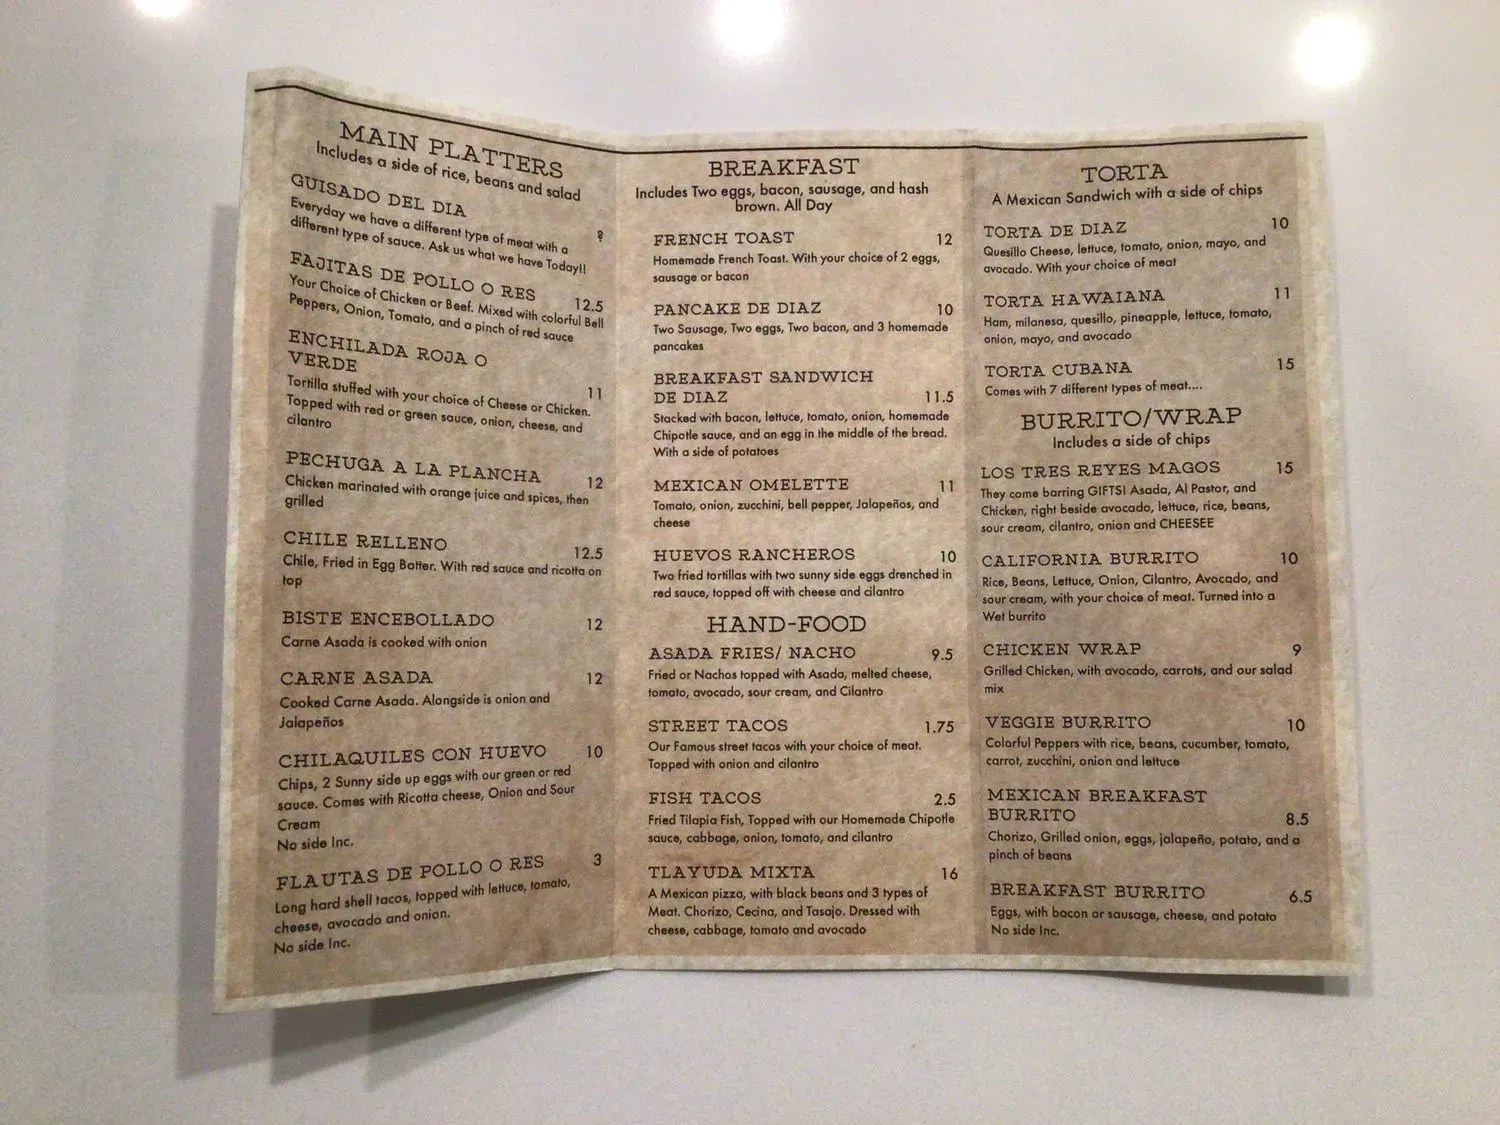 MAIN PLATTERS
Includes a side of rice, beans and salad
GUISADO DEL DIA
Everyday we have a different type of meat with a ?
different type of sauce. Ask us what we have Today!!
FAJITAS DE POLLO O RES 12.5
Your Choice of Chicken or Beef. Mixed with colorful Bell
Peppers, Onion, Tomato, and a pinch of red sauce
ENCHILADA ROJA O
VERDE 11
Tortilla stuffed with your choice of Cheese or Chicken.
Topped with red or green sauce, onion, cheese, and
cilantro
PECHUGA A LA PLANCHA 12
Chicken marinated with orange juice and spices, then
grilled
CHILE RELLENO 12.5
Chile, Fried in Egg Batter. With red sauce and ricotta on
top
BISTE ENCEBOLLADO 12
Carne Asada is cooked with onion
CARNE ASADA 12
Cooked Carne Asada. Alongside is onion and
Jalapeños
CHILAQUILES CON HUEVO 10
Chips, 2 Sunny side up eggs with our green or red
sauce. Comes with Ricotta cheese, Onion and Sour
Cream
No side Inc.
FLAUTAS DE POLLO O RES 3
Long hard shell tacos, topped with lettuce, tomato,
cheese, avocado and onion.
No side Inc.
BREAKFAST
Includes Two eggs, bacon, sausage, and hash
brown. All Day
FRENCH TOAST 12
Homemade French Toast. With your choice of 2 eggs,
sausage or bacon
PANCAKE DE DIAZ 10
Two Sausage, Two eggs, Two bacon, and 3 homemade
pancakes
BREAKFAST SANDWICH
DE DIAZ 11.5
Stacked with bacon, lettuce, tomato, onion, homemade
Chipotle sauce, and an egg in the middle of the bread.
With a side of potatoes
MEXICAN OMELETTE 11
Tomato, onion, zucchini, bell pepper, Jalapeños, and
cheese
HUEVOS RANCHEROS 10
Two fried tortillas with two sunny side eggs drenched in
red sauce, topped off with cheese and cilantro
HAND-FOOD
ASADA FRIES/ NACHO 9.5
Fried or Nachos topped with Asada, melted cheese,
tomato, avocado, sour cream, and Cilantro
STREET TACOS 1.75
Our Famous street tacos with your choice of meat.
Topped with onion and cilantro
FISH TACOS 2.5
Fried Tilapia Fish, Topped with our Homemade Chipotle
sauce, cabbage, onion, tomato, and cilantro
TLAYUDA MIXTA 16
A Mexican pizza, with black beans and 3 types of
Meat. Chorizo, Cecina, and Tasajo. Dressed with
cheese, cabbage, tomato and avocado
TORTA
A Mexican Sandwich with a side of chips
TORTA DE DIAZ 10
Quesillo Cheese, lettuce, tomato, onion, mayo, and
avocado. With your choice of meat
TORTA HAWAIANA 11
Ham, milanesa, quesillo, pineapple, lettuce, tomato,
onion, mayo, and avocado
TORTA CUBANA 15
Comes with 7 different types of meat....
BURRITO/WRAP
Includes a side of chips
LOS TRES REYES MAGOS 15
They come barring GIFTS! Asada, Al Pastor, and
Chicken, right beside avocado, lettuce, rice, beans,
sour cream, cilantro, onion and CHEESEE
CALIFORNIA BURRITO 10
Rice, Beans, Lettuce, Onion, Cilantro, Avocado, and
sour cream, with your choice of meat. Turned into a
Wet burrito
CHICKEN WRAP 9
Grilled Chicken, with avocado, carrots, and our salad
mix
VEGGIE BURRITO 10
Colorful Peppers with rice, beans, cucumber, tomato,
carrot, zucchini, onion and lettuce
MEXICAN BREAKFAST
BURRITO 8.5
Chorizo, Grilled onion, eggs, jalapeño, potato, and a
pinch of beans
BREAKFAST BURRITO 6.5
Eggs, with bacon or sausage, cheese, and potato
No side Inc.